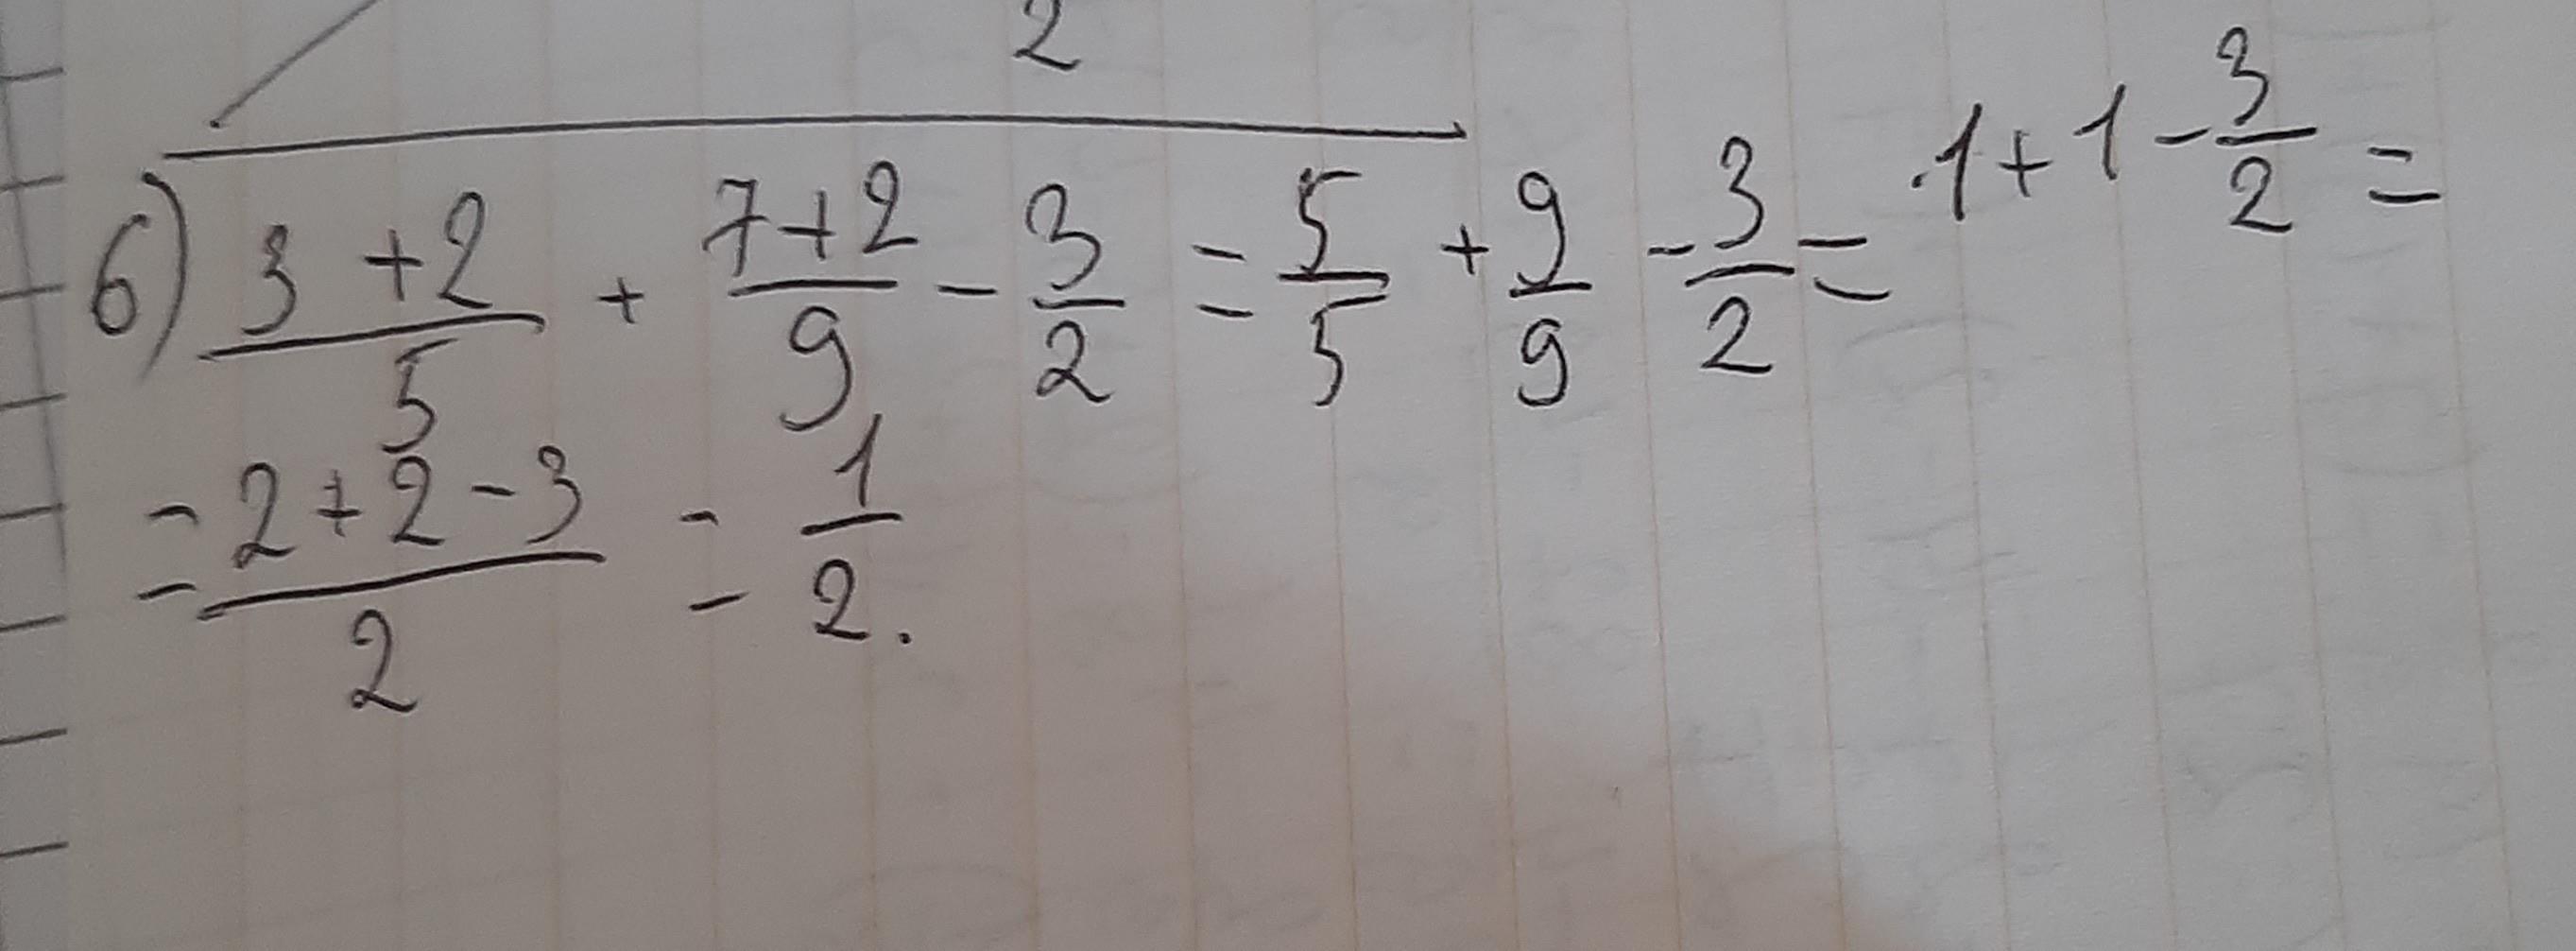 2
6) (3+2)/5 + (7+2)/9 - 3/2 = 5/5 + 9/9 - 3/2 = 1+1-3/2 =
= (2+2-3)/2 = 1/2.